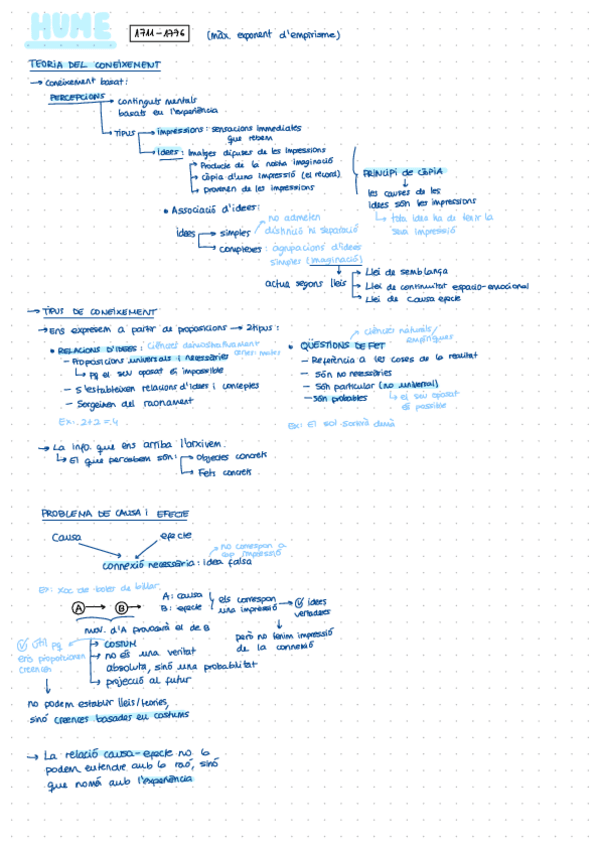 HUME 1711-1776 (màx exponent d'empirisme)
TEORIA DEL CONEIXEMENT
→ Coneixement basat:
PERCEPCIONS → continguts mentals
basats en l'experiència
→ TIPUS → impressions: sensacions immediates
que rebem
→ Idees: Imatges difuses de les Impressions
→ Producte de la nostra imaginació
→ Còpia d'una Impressió (el record)
→ provenen de les impressions
PRINCIPI DE CÒPIA
↓
les causes de les
idees són les impressions
↳ tota idea ha de tenir la
seva impressió
• Associació d'idees:
no admeten
distinció ni separació
Idees → simples
→ complexes: agrupacions d'idees
simples (imaginació)
actua segons lleis → Llei de semblança
→ Llei de continuïtat espacio-emocional
→ Llei de causa efecte
→ TIPUS DE CONEIXEMENT
→ Ens expresem a partir de proposicions → 2 tipus:
• RELACIONS D'IDEES: Ciències
– Proposicions universals i necessàries
↳ Pq el seu oposat és impossible
– S'estableixen relacions d'idees i conceptes
– Sorgeixen del raonament
Ex: 2+2=4
ciències naturals/
empíriques
• QÜESTIONS DE FET
– Referència a les coses de la realitat
– Són no necessàries
– Són particular (no universal)
– són probables ↳ el seu oposat
és possible
Ex: El sol sortirà demà
→ La info. que ens arriba l'arxivem.
↳ El que percebem són: → Objectes concrets
→ Fets concrets
PROBLEMA DE CAUSA I EFECTE
Causa efecte
no correspon a
cap impressió
connexió necessària: idea falsa
Ex: xoc de boles de billar.
A → B →
A: causa
B: efecte
els correspon
una impressió
→ idees
vertaderes
↓
però no tenim impressió
de la connexió
mov. d'A provocarà el de B
Útil pq
ens proporcionen
creences
→ COSTUM
→ no és una veritat
absoluta, sinó una probabilitat
→ projecció al futur
no podem establir lleis/teories,
sinó creences basades en costums
→ La relació causa-efecte no la
podem entendre amb la raó, sinó
que només amb l'experiència